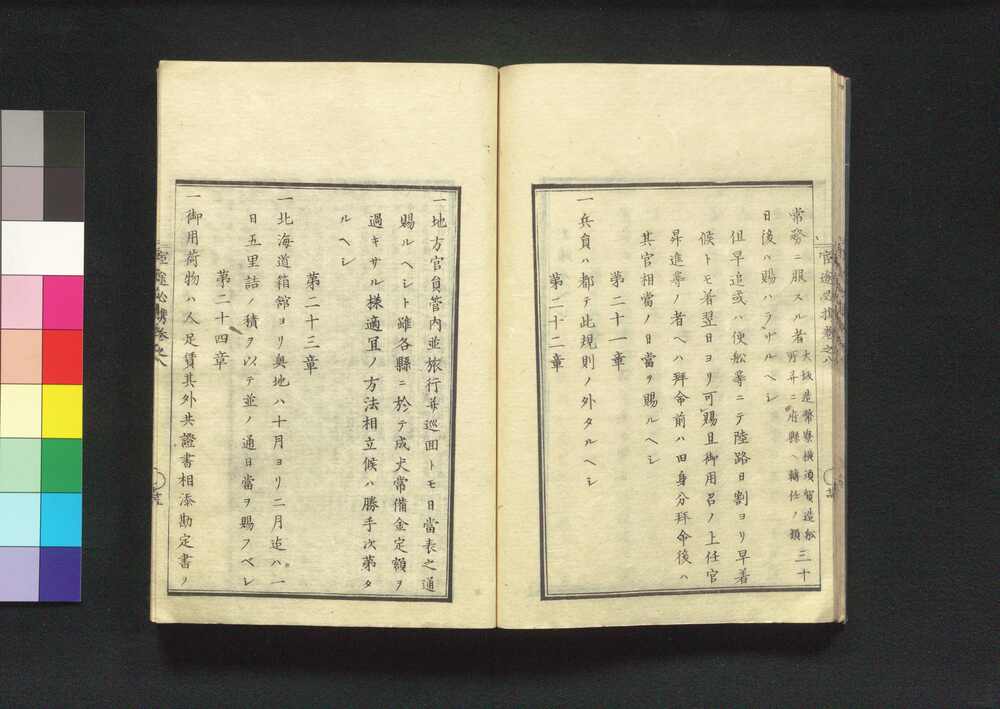 常務ニ服スル者大坂造幣寮横須賀造舩所并ニ府縣ヘ轉任ノ類三十
日後ハ賜ハラサルヘシ
但早追或ハ便舩等ニテ陸路日割ヨリ早着
候トモ着翌日ヨリ可賜且御用召ノ上任官
昇進等ノ者ヘハ拜命前ハ旧身分拜命後ハ
其官相當ノ日當ヲ賜ルヘシ
第二十一章
一兵員ハ都テ此規則ノ外タルヘシ
第二十二章
一地方官員管内並旅行并巡回トモ日當表之通
賜ルヘシト雖各縣ニ於テ成丈常備金定額ヲ
過キサル様適宜ノ方法相立候ハ勝手次第タ
ルヘシ
第二十三章
一北海道箱館ヨリ奥地ハ十月ヨリ二月迠ハ一
日五里詰ノ積ヲ以テ並ノ通日當ヲ賜フベシ
第二十四章
一御用荷物ハ人足賃其外共證書相添勘定書ヲ
官途必携卷之八